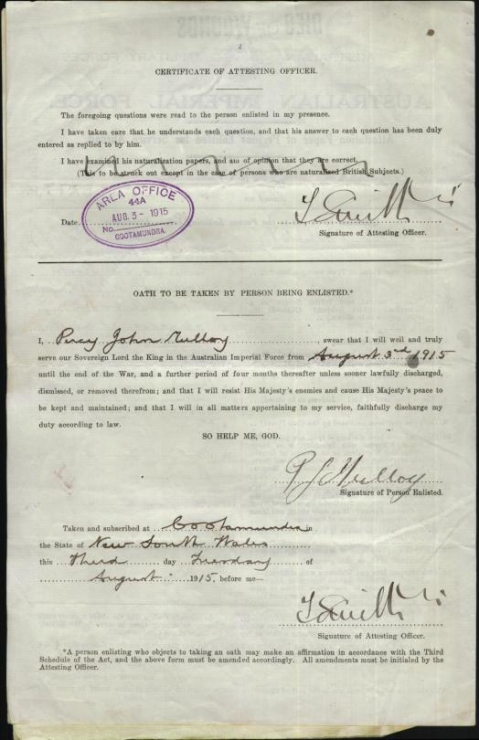 2
CERTIFICATE OF ATTESTING OFFICER.
The foregoing questions were read to the person enlisted in my presence.
I have taken care that he understands each question, and that his answer to each question has been duly
entered as replied to by him.
I have examined his naturalization papers, and am of opinion that they are correct.
(This to be struck out except in the case of persons who are naturalized British Subjects.)
AREA OFFICE
44A
AUG 3 - 1915
No.
COOTAMUNDRA
Date
Signature of Attesting Officer.
OATH TO BE TAKEN BY PERSON BEING ENLISTED.*
I, Percy John Mulloy, swear that I will well and truly
serve our Sovereign Lord the King in the Australian Imperial Force from August 3rd 1915
until the end of the War, and a further period of four months thereafter unless sooner lawfully discharged,
dismissed, or removed therefrom; and that I will resist His Majesty's enemies and cause His Majesty's peace to
be kept and maintained; and that I will in all matters appertaining to my service, faithfully discharge my
duty according to law.
SO HELP ME, GOD.
P J Mulloy
Signature of Person Enlisted.
Taken and subscribed at Cootamundra in
the State of New South Wales
this Third day Tuesday of
August 1915, before me—
Signature of Attesting Officer.
*A person enlisting who objects to taking an oath may make an affirmation in accordance with the Third
Schedule of the Act, and the above form must be amended accordingly. All amendments must be initialed by the
Attesting Officer.